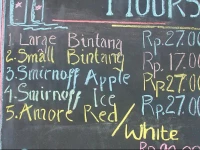 HOURS
1. Large Bintang Rp. 27.00
2. Small Bintang Rp. 17.00
3. Smirnoff Apple Rp. 27.00
4. Smirnoff Ice Rp. 27.0
5. Amore Red/
White